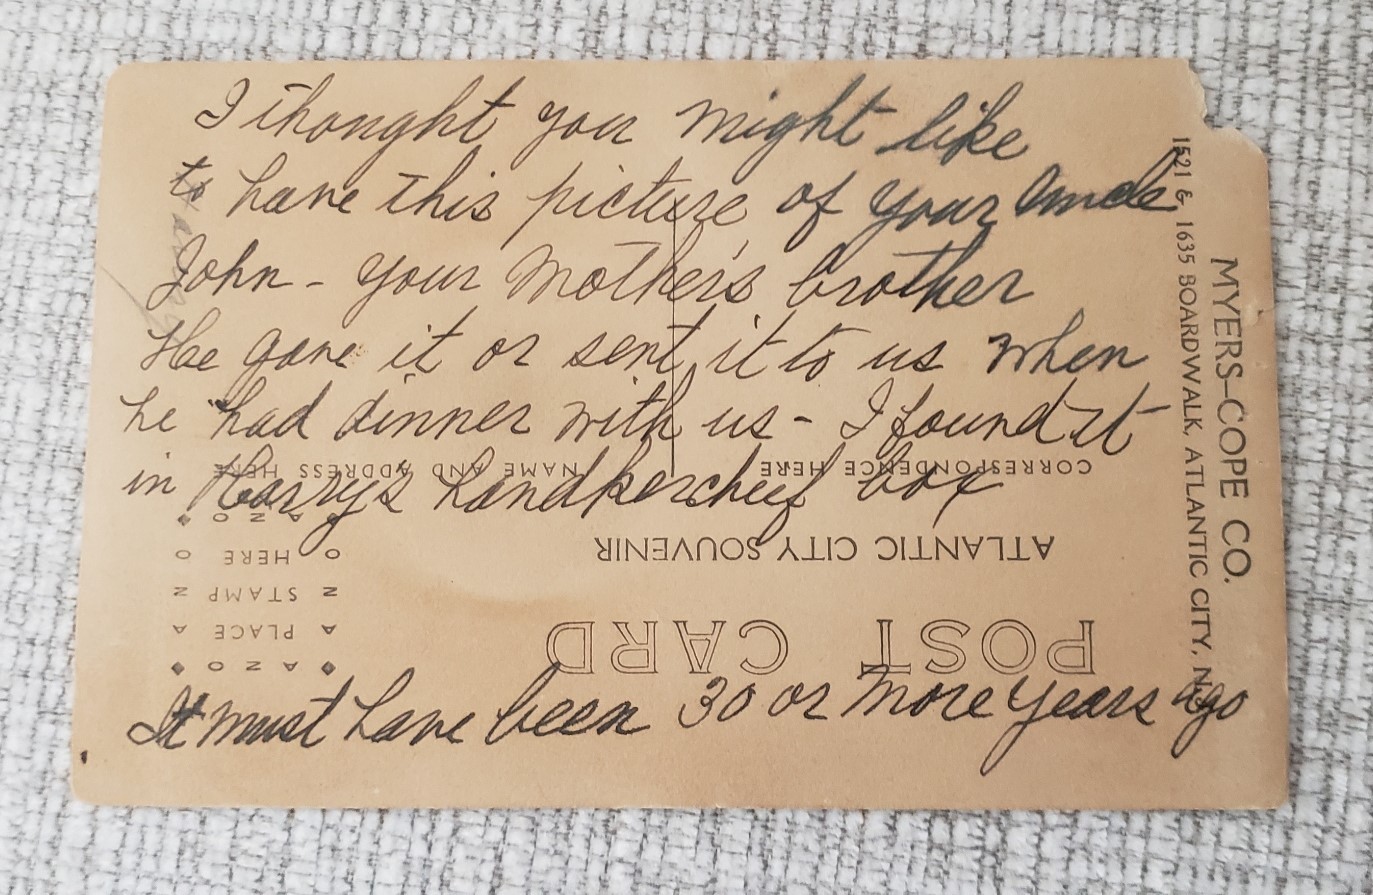 I thought you might like
to have this picture of your Uncle
John - your Mother's brother
He gave it or sent it to us when
he had dinner with us - I found it
in Harry's handkercheif box
It must have been 30 or more years ago
MYERS-COPE CO.
1521 & 1635 BOARDWALK, ATLANTIC CITY, N.
POST CARD
ATLANTIC CITY SOUVENIR
CORRESPONDENCE HERE
NAME AND ADDRESS HERE
AZO
PLACE
STAMP
HERE
AZO